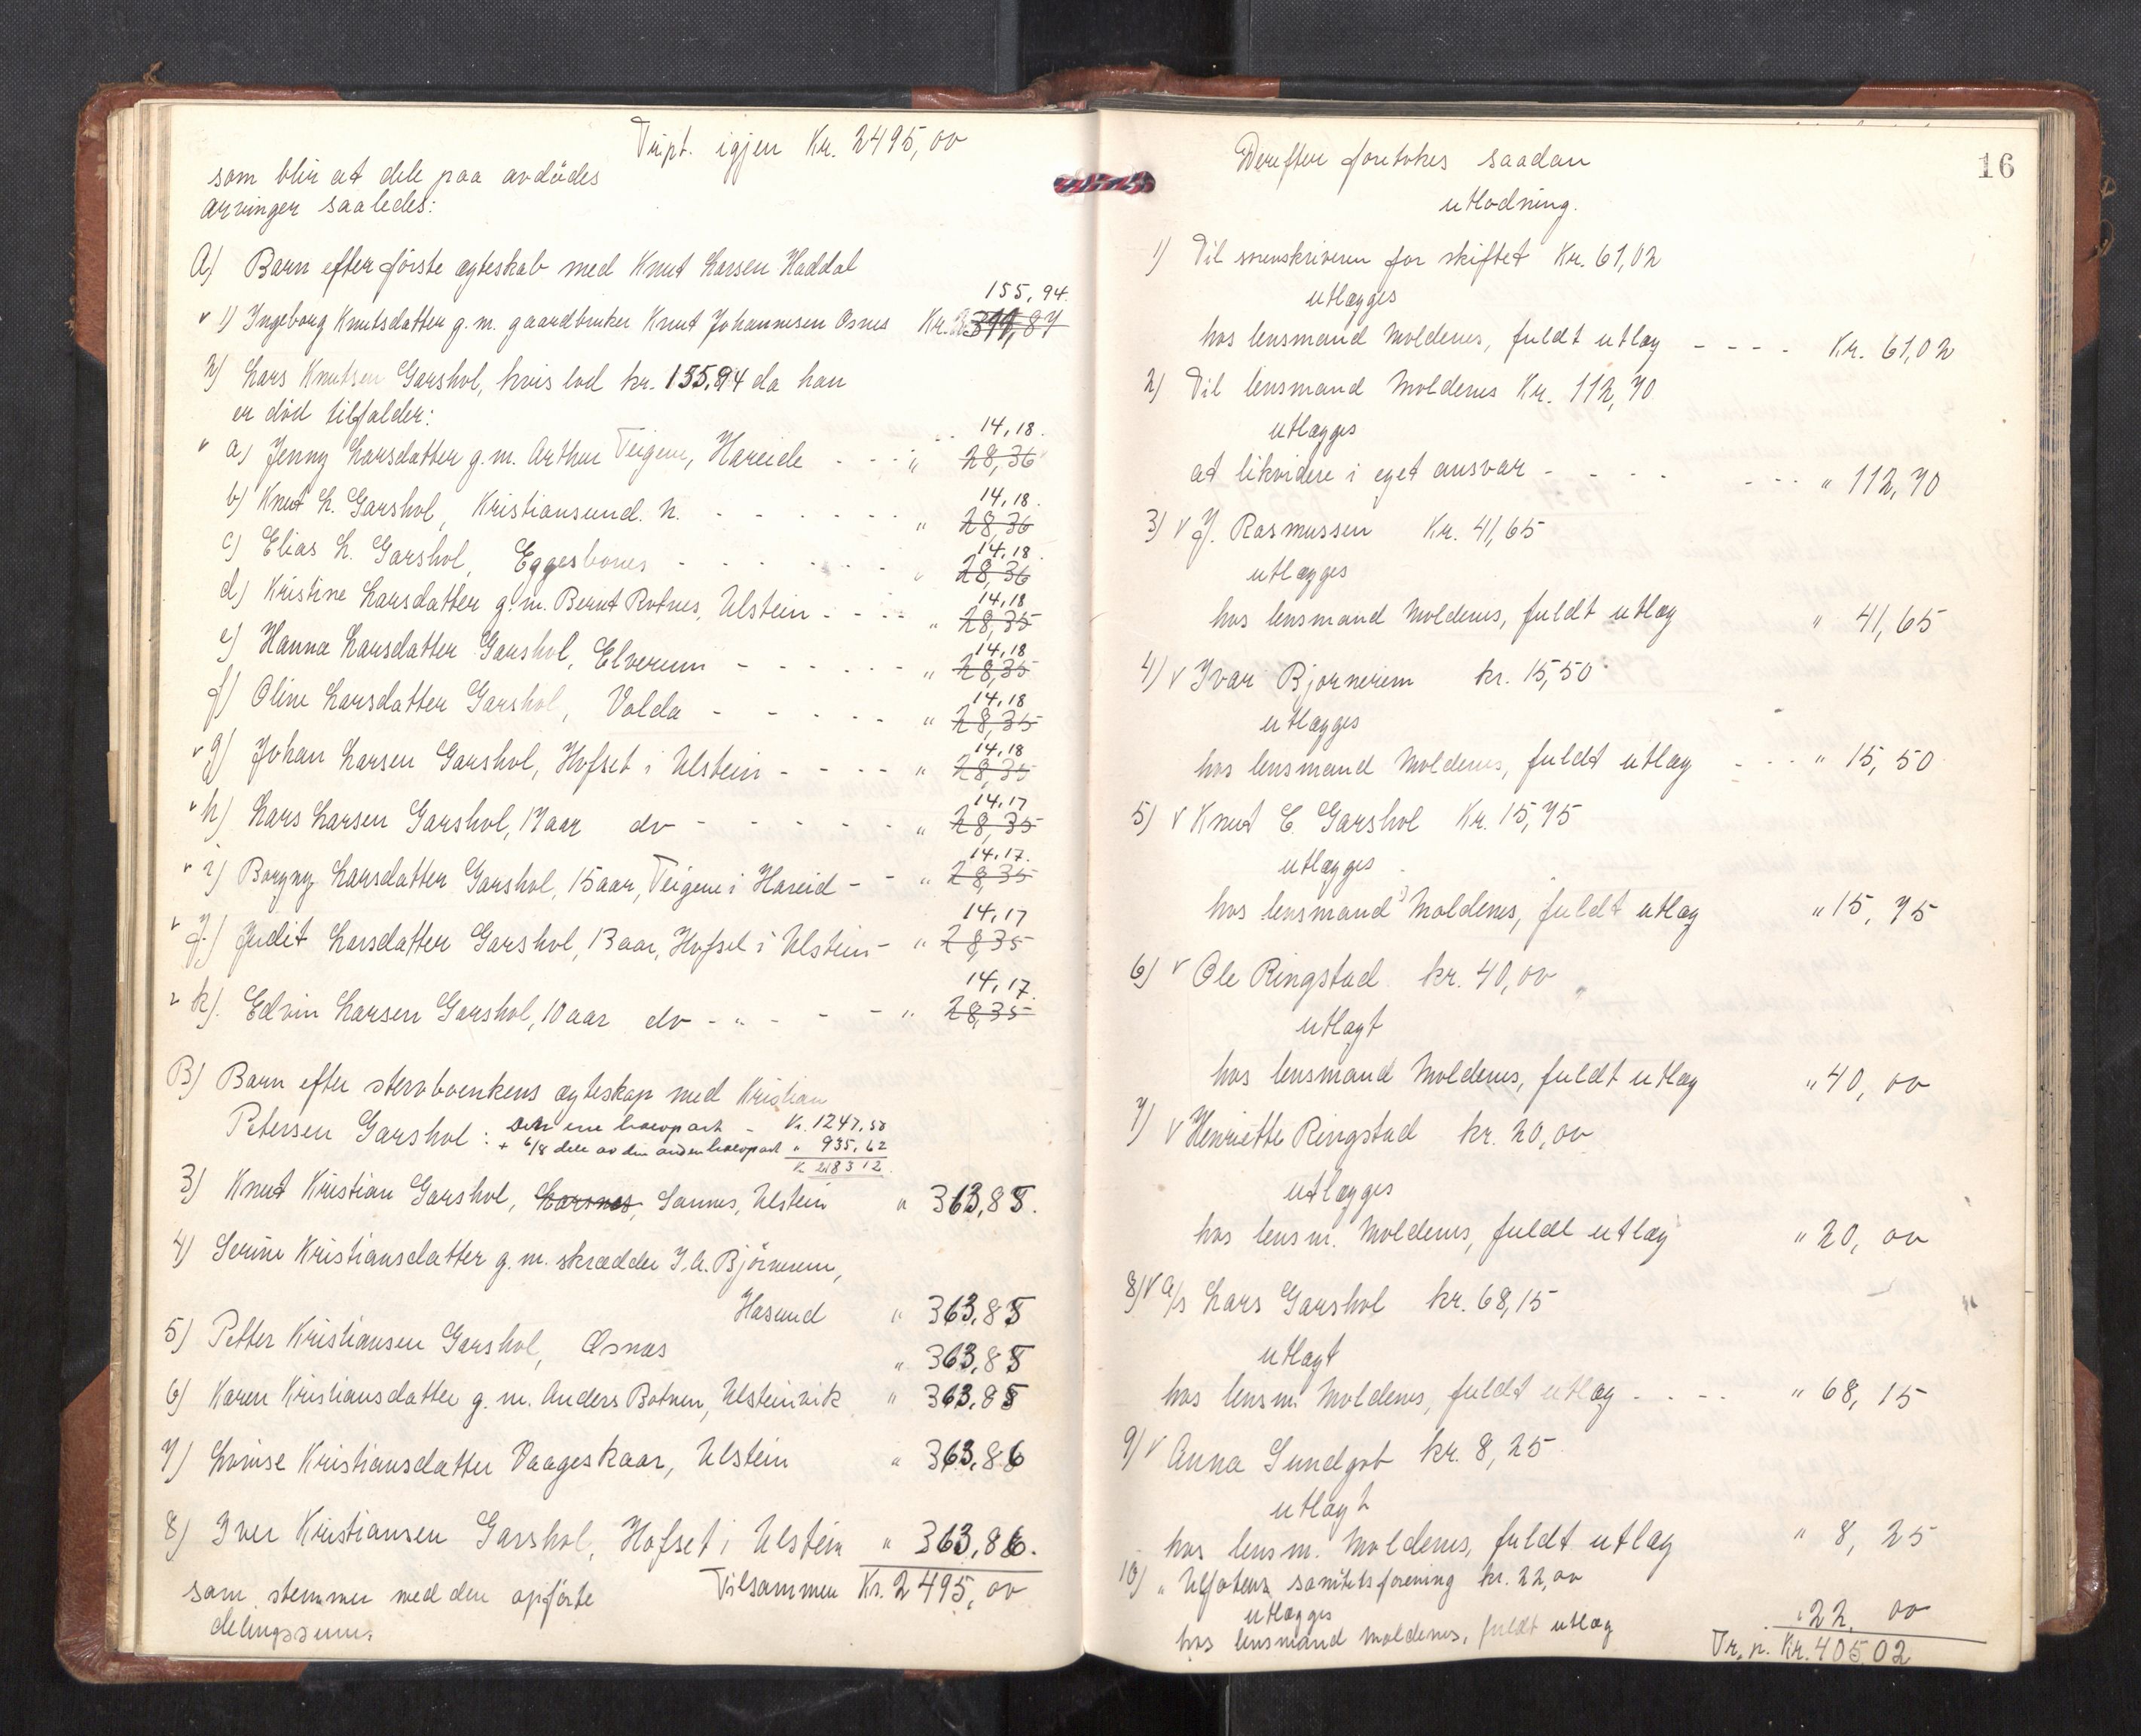 Tript. igjen Kr. 2495,00
som blir at dele paa avdødes
arvinger saaledes:
A) Barn efter første egteskab med Knut Larsen Haddal
155,94.
v 1) Ingeborg Knutsdatter g.m. gaardbruker Knut Johannesen Osnes Kr. 311,87
2) Lars Knutsen Garshol, hvis lod kr. 155,94 da han
er død tilfalder:
14,18.
" a) Jenny Larsdatter g.m. Arthur Teigene, Hareide - - - " 28,36
14,18.
b) Knut L. Garshol, Kristiansund. N. - - - - - - " 28,36
14,18.
c) Elias L. Garshol, Eggesbønes - - - - - - " 28,36
14,18
d) Kristine Larsdatter g.m. Bernt Rotnes, Ulstein - - - - " 28,35
14,18
e) Hanna Larsdatter Garshol, Elverum - - - - - - " 28,35
14,18
f) Oline Larsdatter Garshol, Volda - - - - - " 28,35
14,18
v g) Johan Larsen Garshol, Hofset i Ulstein - - - - " 28,35
14,17
v h) Lars Larsen Garshol, 17 aar do - - - - - - " 28,35
14,17.
v i) Borgny Larsdatter Garshol, 15 aar, Teigene i Hareid - - " 28,35
14,17
v j.) Judit Larsdatter Garshol, 13 aar, Hofset i Ulstein - " 28,35
14,17.
v k). Edvin Larsen Garshol, 10 aar do - " - - - " 28,35
B) Barn efter stervboenkens egteskap med Kristian
Petersen Garshol: Den ene hovepart - Kr. 1247,50
+ 6/8 dele av den anden hovepart " 935,62
K. 2183 12.
3) Knut Kristian Garshol, Larsnes, Sannes, Ulstein " 363,85.
4) Serine Kristiansdatter g.m. skrædder I.A. Bjørnerem,
Hasund " 363,85
5) Petter Kristiansen Garshol, Osnes " 363,85
6) Karen Kristiansdatter g.m. Anders Botnen, Ulsteinvik " 363,85
7) Lovise Kristiansdatter Vaageskaar, Ulstein " 363,86
8) Iver Kristiansen Garshol, Hofset i Ulstein " 363,86.
som stemmer med den opførte Tilsammen Kr. 2495,00
delingssum.
16
Derefter foretokes saadan
utlodning.
1) Til sorenskriveren for skiftet Kr. 61,02
utlægges
hos lensmand Moldenes, fuldt utlæg - - - - Kr. 61,02
2) Til lensmand Moldenes Kr. 112,70
utlægges
at likvidere i eget ansvar - - - - - - - " 112,70
3) v J. Rasmussen Kr. 41,65
utlægges
hos lensmand Moldenes, fuldt utlæg " 41,65
4) v Ivar Bjørnerem kr. 15,50
utlægges
hos lensmand Moldenes, fuldt utlæg - - - " 15,50
5) v Knut E. Garshol Kr. 15,75
utlægges
hos lensmand Moldenes, fuldt utlæg " 15,75
6) v Ole Ringstad kr. 40,00
utlagt
hos lensmand Moldenes, fuldt utlæg " 40,00
7) v Henriette Ringstad kr. 20,00
utlægges
hos lensm. Moldenes, fuldt utlæg " 20,00
8) v A/s Lars Garshol kr. 68,15
utlagt
hos lensm. Moldenes, fuldt utlæg - - - - " 68,15
9) v Anna Sundgot kr. 8,25
utlagt
hos lensm. Moldenes, fuldt utlæg " 8,25
10) " Ulfotens sanitetsforening kr. 22,00
utlægges
hos lensmand Moldenes, fuldt utlæg " 22,00
Tr. p. Kr. 405,02